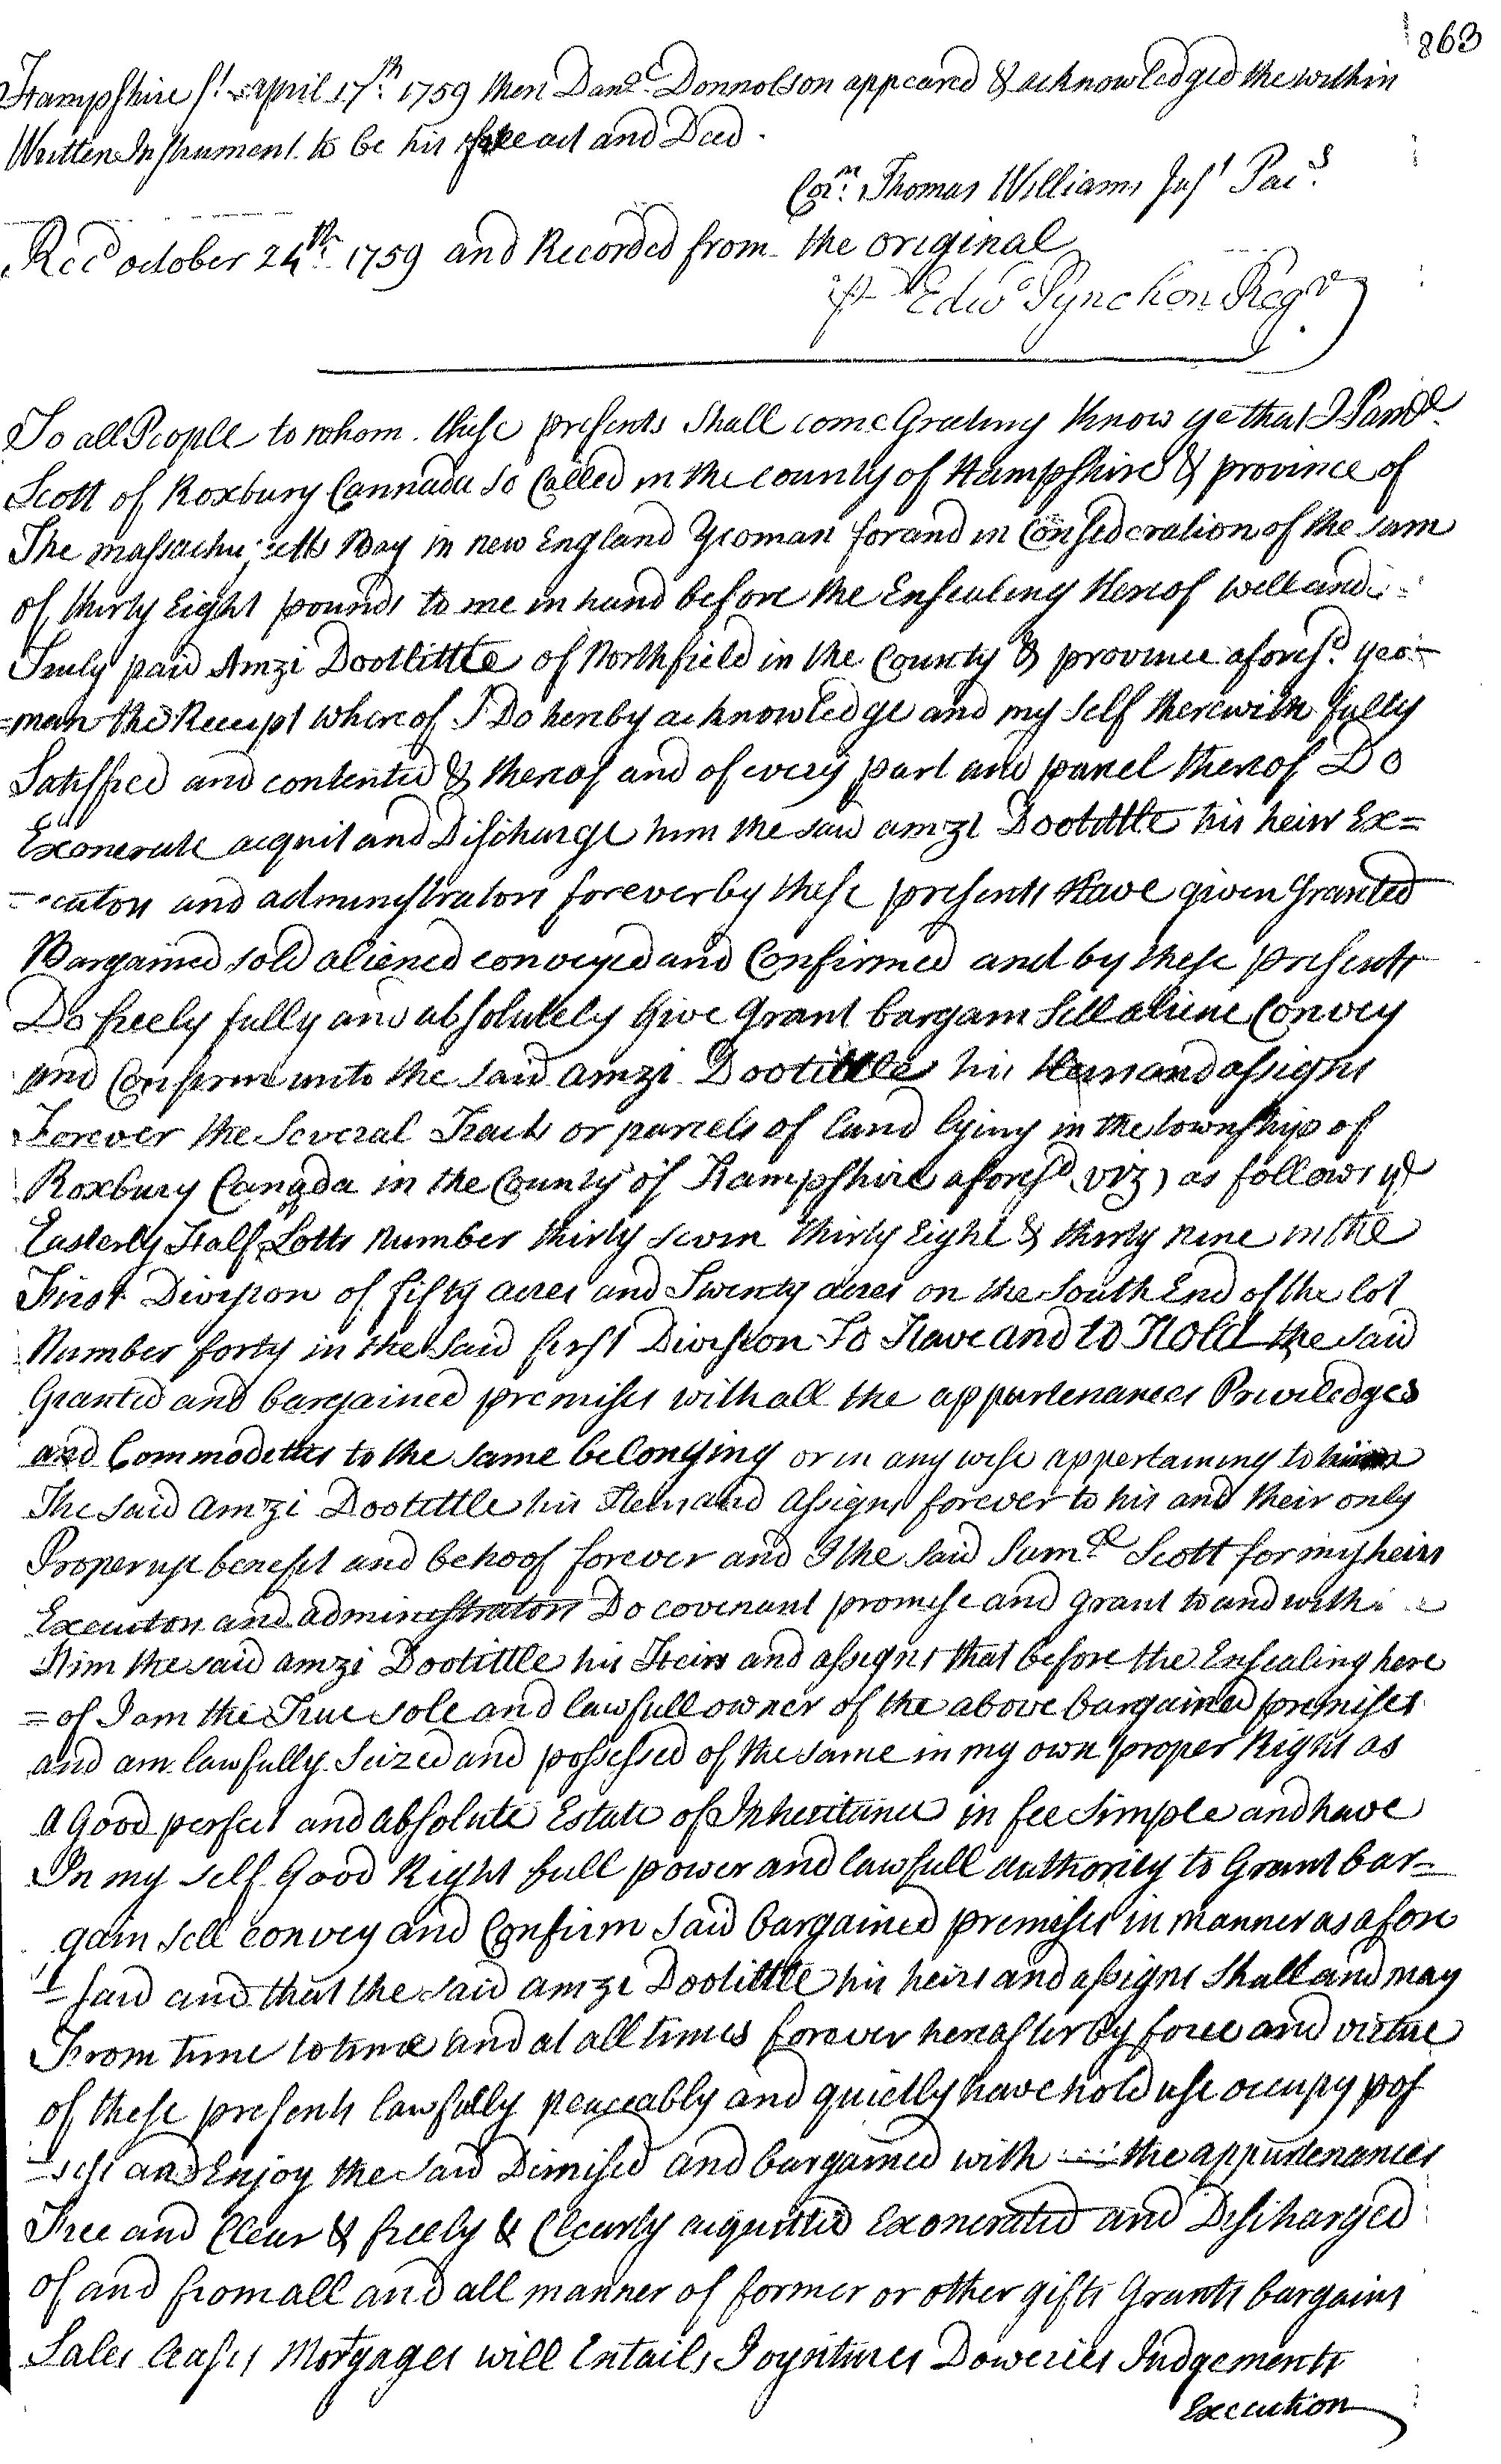 863
Hampshire ss. april 17th 1759 then Danel Donnolson appeared & acknowledged the within
Written Instrument to be his free act and Deed.
Corm Thomas Williams Just Pacs
Recd october 24th 1759 and Recorded from the original
pr Edwd Pynchon Regr
To all People to whom these presents Shall come Greeting Know ye that I Samll
Scott of Roxbury Cannada so Called in the county of Hampshire & province of
The massachusetts Bay in new England Yeoman for and in Consederation of the sum
of thirty Eight pounds to me in hand before the Ensealing Hereof well and
Truly paid Amzi Doolittle of Northfield in the County & province aforesd yeo-
=man the Receipt whereof I Do hereby acknowledge and my self therewith fully
Satisfied and contented & thereof and of every part and parcel thereof Do
Exonerate acquit and Discharge him the said amzi Doolittle his heirs Ex=
=ecutors and administrators forever by these presents Have given Granted
Bargained sold aliened conveyed and Confirmed and by these presents
Do freely fully and absolutely Give Grant bargain Sell aliene Convey
and Confirm unto the said amzi Doolittle his Heirs and assigns
Forever the Several Tracts or parcels of land lying in the township of
Roxbury Canada in the County of Hampshire aforesd viz) as follows ye
Easterly Half Lotts Number thirty seven thirty Eight & thirty nine in the
First Division of fifty acres and Twenty acres on the South End of the lot
Number forty in the said first Division To Have and to Hold the said
Granted and bargained premises with all the appurtenances Priviledges
and Commodetes to the same belonging or in any wise appertaining to him
The said amzi Doolittle his Heirs and assigns forever to his and their only
Proper use benefit and behoof forever and I the said Samll Scott for my heirs
Executors and administrators Do covenant promise and grant to and with
Him the said amzi Doolittle his Heirs and assigns that before the Ensealing here
=of I am the True sole and lawfull owner of the above bargained premises
and am lawfully Seized and possessed of the same in my own proper Right as
a Good perfect and absolute Estate of Inheritance in fee simple and have
In my self Good Right full power and lawfull authority to Grant bar-
gain sell convey and Confirm said bargained premises in manner as afore
=said and that the said amzi Doolittle his heirs and assigns Shall and may
From time to time and at all times forever hereafter by force and virtue
of these presents lawfully peaceably and quietly have hold use occupy pos
=sess and Enjoy the said Demised and bargained with the appurtenances
Free and Clear & freely & Clearly acquitted Exonerated and Discharged
of and from all and all manner of former or other gifts Grants bargains
Sales leases Mortgages will Entails Joyntures Doweries Judgements
Execution